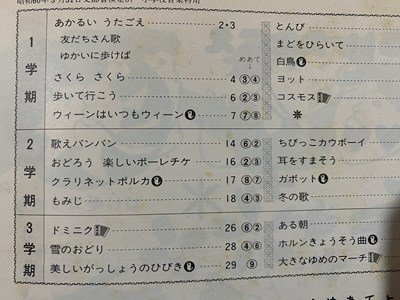 1学期
あかるい うたごえ 2・3
友だちさん歌
ゆかいに歩けば
めあて
さくら さくら 4 ③④
歩いて行こう 6 ②③
ウィーンはいつもウィーン 7 ⑦⑧
とんび
まどをひらいて
白鳥
ヨット
コスモス
＊
2学期
歌えバンバン 14 ⑥②
おどろう 楽しいポーレチケ 16 ②③
クラリネットポルカ 17 ⑧⑦
もみじ 18 ④③
ちびっこカウボーイ
耳をすまそう
ガボット
冬の歌
3学期
ドミニク 26 ⑥②
雪のおどり 28 ④⑥
美しいがっしょうのひびき 29 ⑨
ある朝
ホルンきょうそう曲
大きなゆめのマーチ